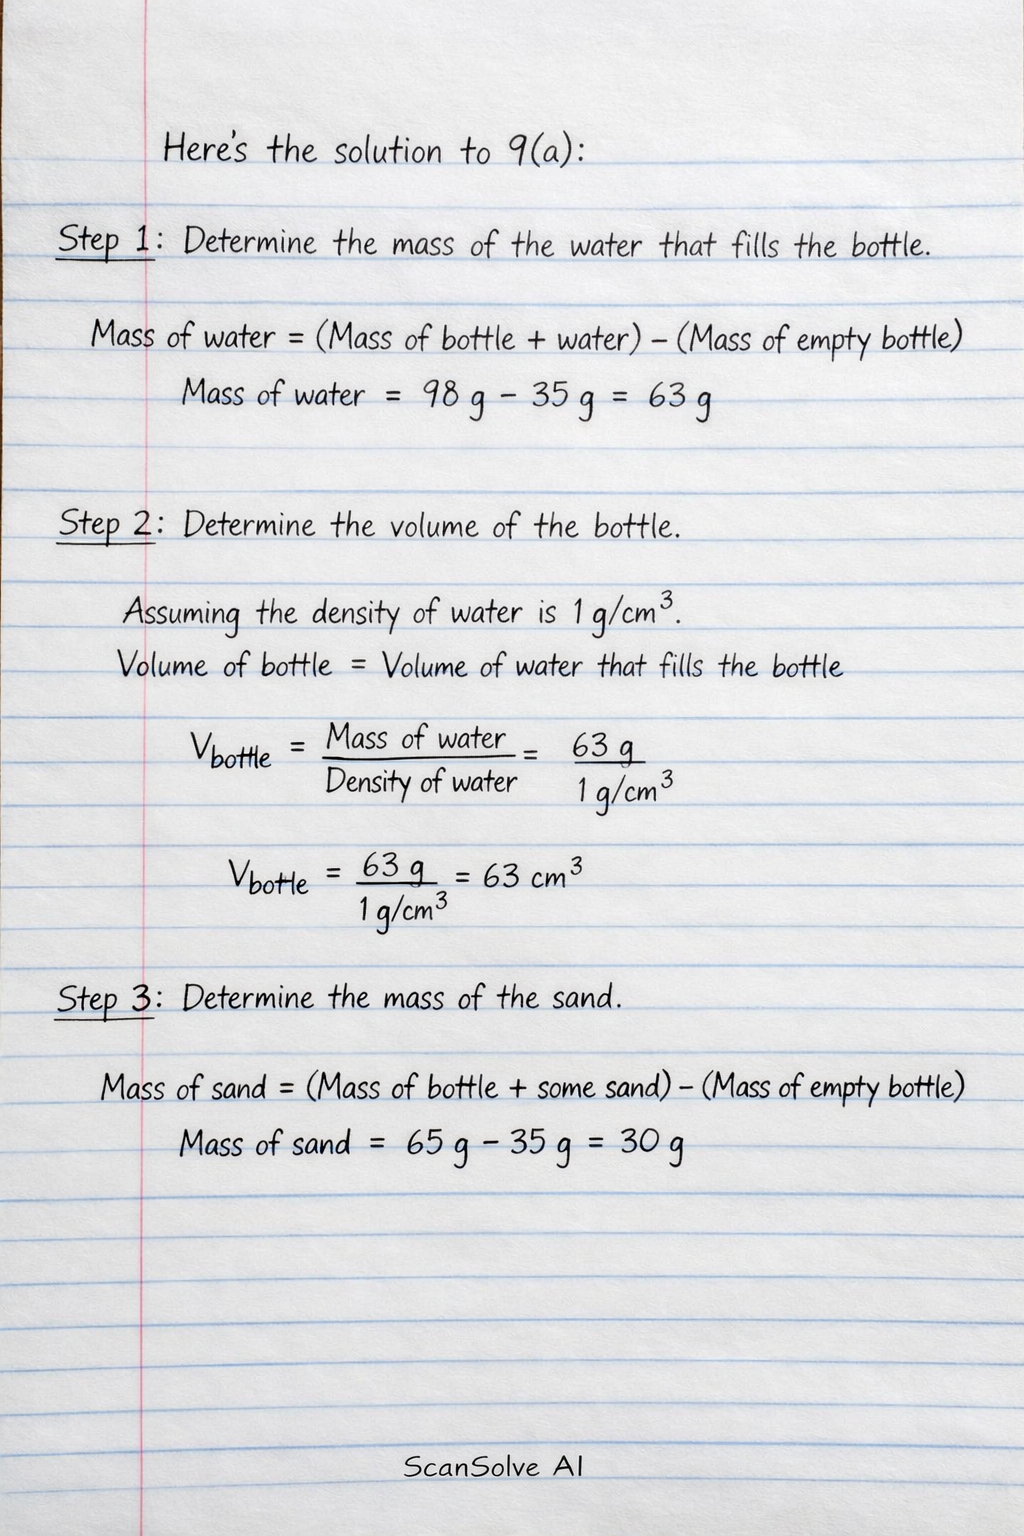 Here's the solution to 9(a):
Step 1: Determine the mass of the water that fills the bottle.
Mass of water = (Mass of bottle + water) – (Mass of empty bottle)
Mass of water = 98 g – 35 g = 63 g
Step 2: Determine the volume of the bottle.
Assuming the density of water is 1 g/cm³.
Volume of bottle = Volume of water that fills the bottle
V_bottle = Mass of water / Density of water = 63 g / 1 g/cm³
V_bottle = 63 g / 1 g/cm³ = 63 cm³
Step 3: Determine the mass of the sand.
Mass of sand = (Mass of bottle + some sand) – (Mass of empty bottle)
Mass of sand = 65 g – 35 g = 30 g
ScanSolve AI